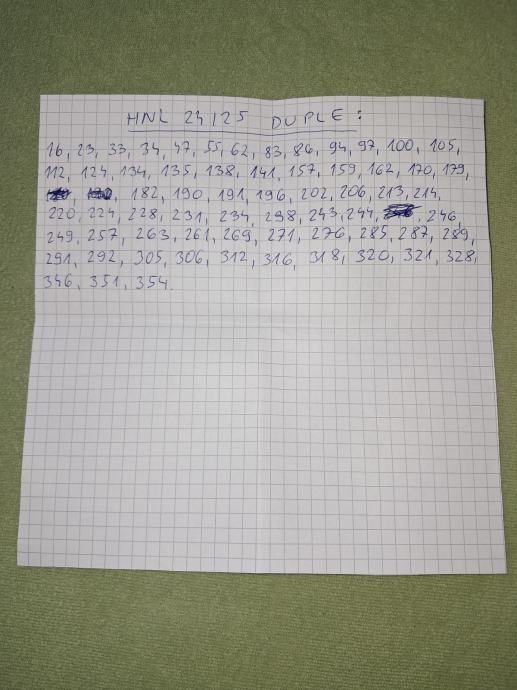 HNL 24/25 DUPLE:
16, 23, 33, 34, 47, 55, 62, 83, 86, 94, 97, 100, 105,
112, 124, 134, 135, 138, 141, 157, 159, 162, 170, 179,
182, 190, 191, 196, 202, 206, 213, 214,
220, 224, 228, 231, 234, 238, 243, 244, 246,
249, 257, 263, 261, 269, 271, 276, 285, 287, 289,
291, 292, 305, 306, 312, 316, 318, 320, 321, 328,
346, 351, 354.